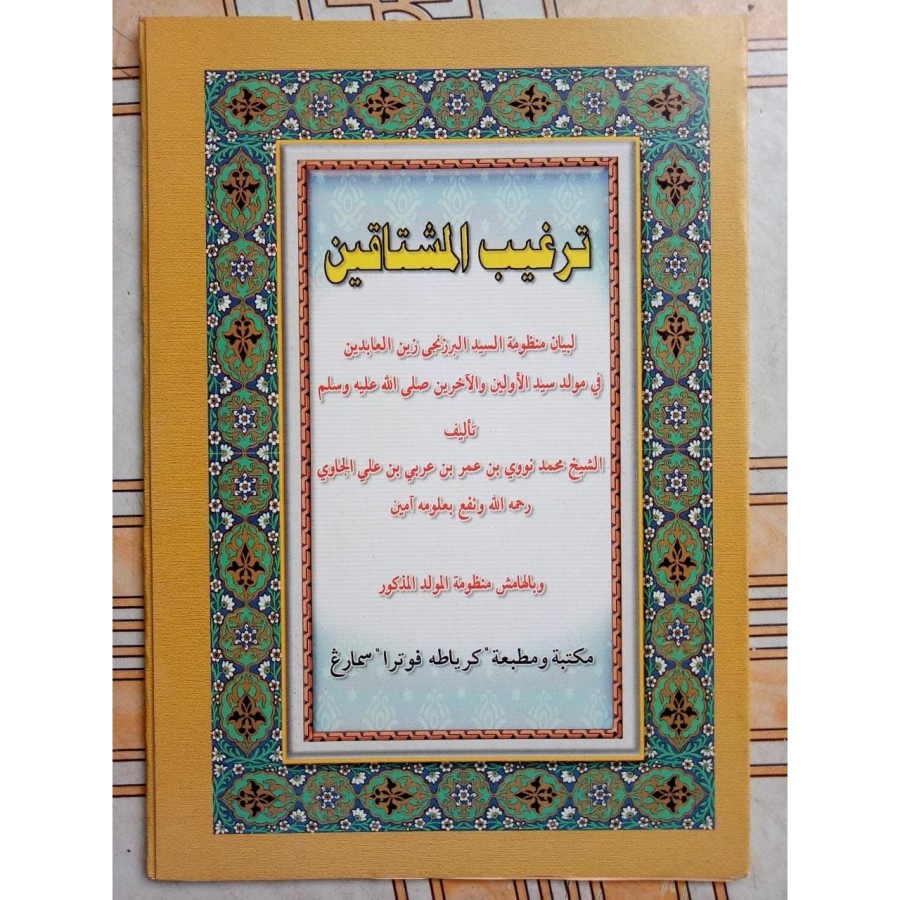 ترغيب المشتاقين
لبيان منظومة السيد البرزنجى زين العابدين
في مولد سيد الأولين والآخرين صلى الله عليه وسلم
تأليف
الشيخ محمد نووي بن عمر بن عربي بن علي الجاوي
رحمه الله ونفع بعلومه آمين
وبالهامش منظومة المولد المذكور
مكتبة ومطبعة "كرياطه فوترا" سمارڠ